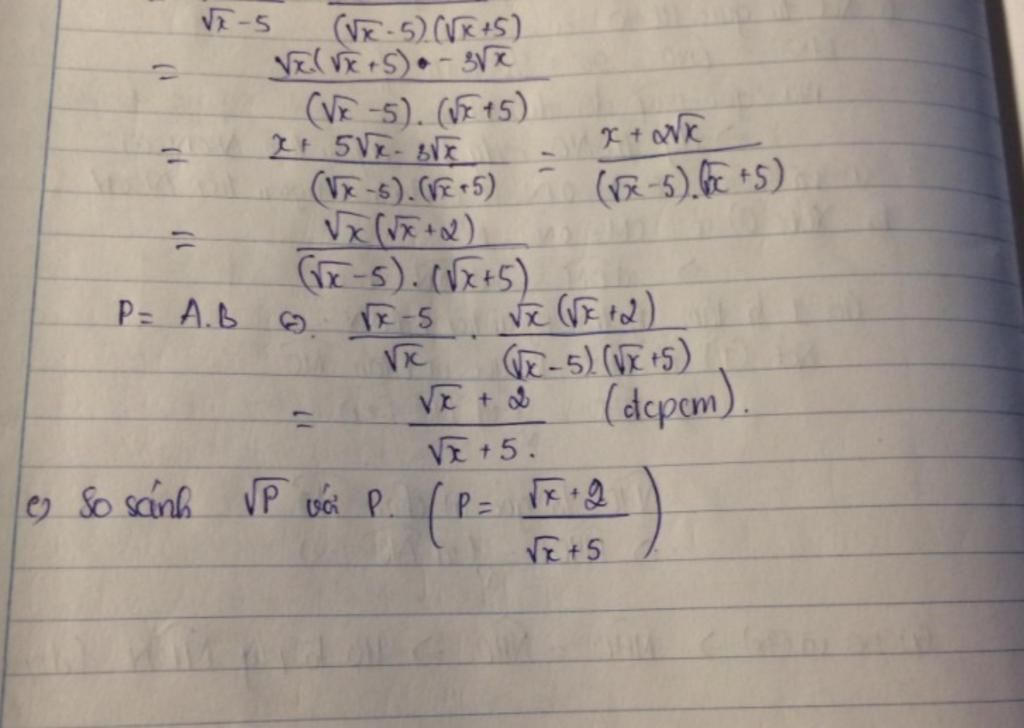 √x - 5 (√x - 5).(√x + 5)
= √x.(√x + 5) - 3√x / (√x - 5).(√x + 5)
= x + 5√x - 3√x / (√x - 5).(√x + 5) = x + 2√x / (√x - 5).(√x + 5)
= √x(√x + 2) / (√x - 5).(√x + 5)
P = A.B ⇔ √x - 5 / √x . √x(√x + 2) / (√x - 5).(√x + 5)
= √x + 2 / √x + 5. (đcpcm).
c) So sánh √P với P. (P = √x + 2 / √x + 5)